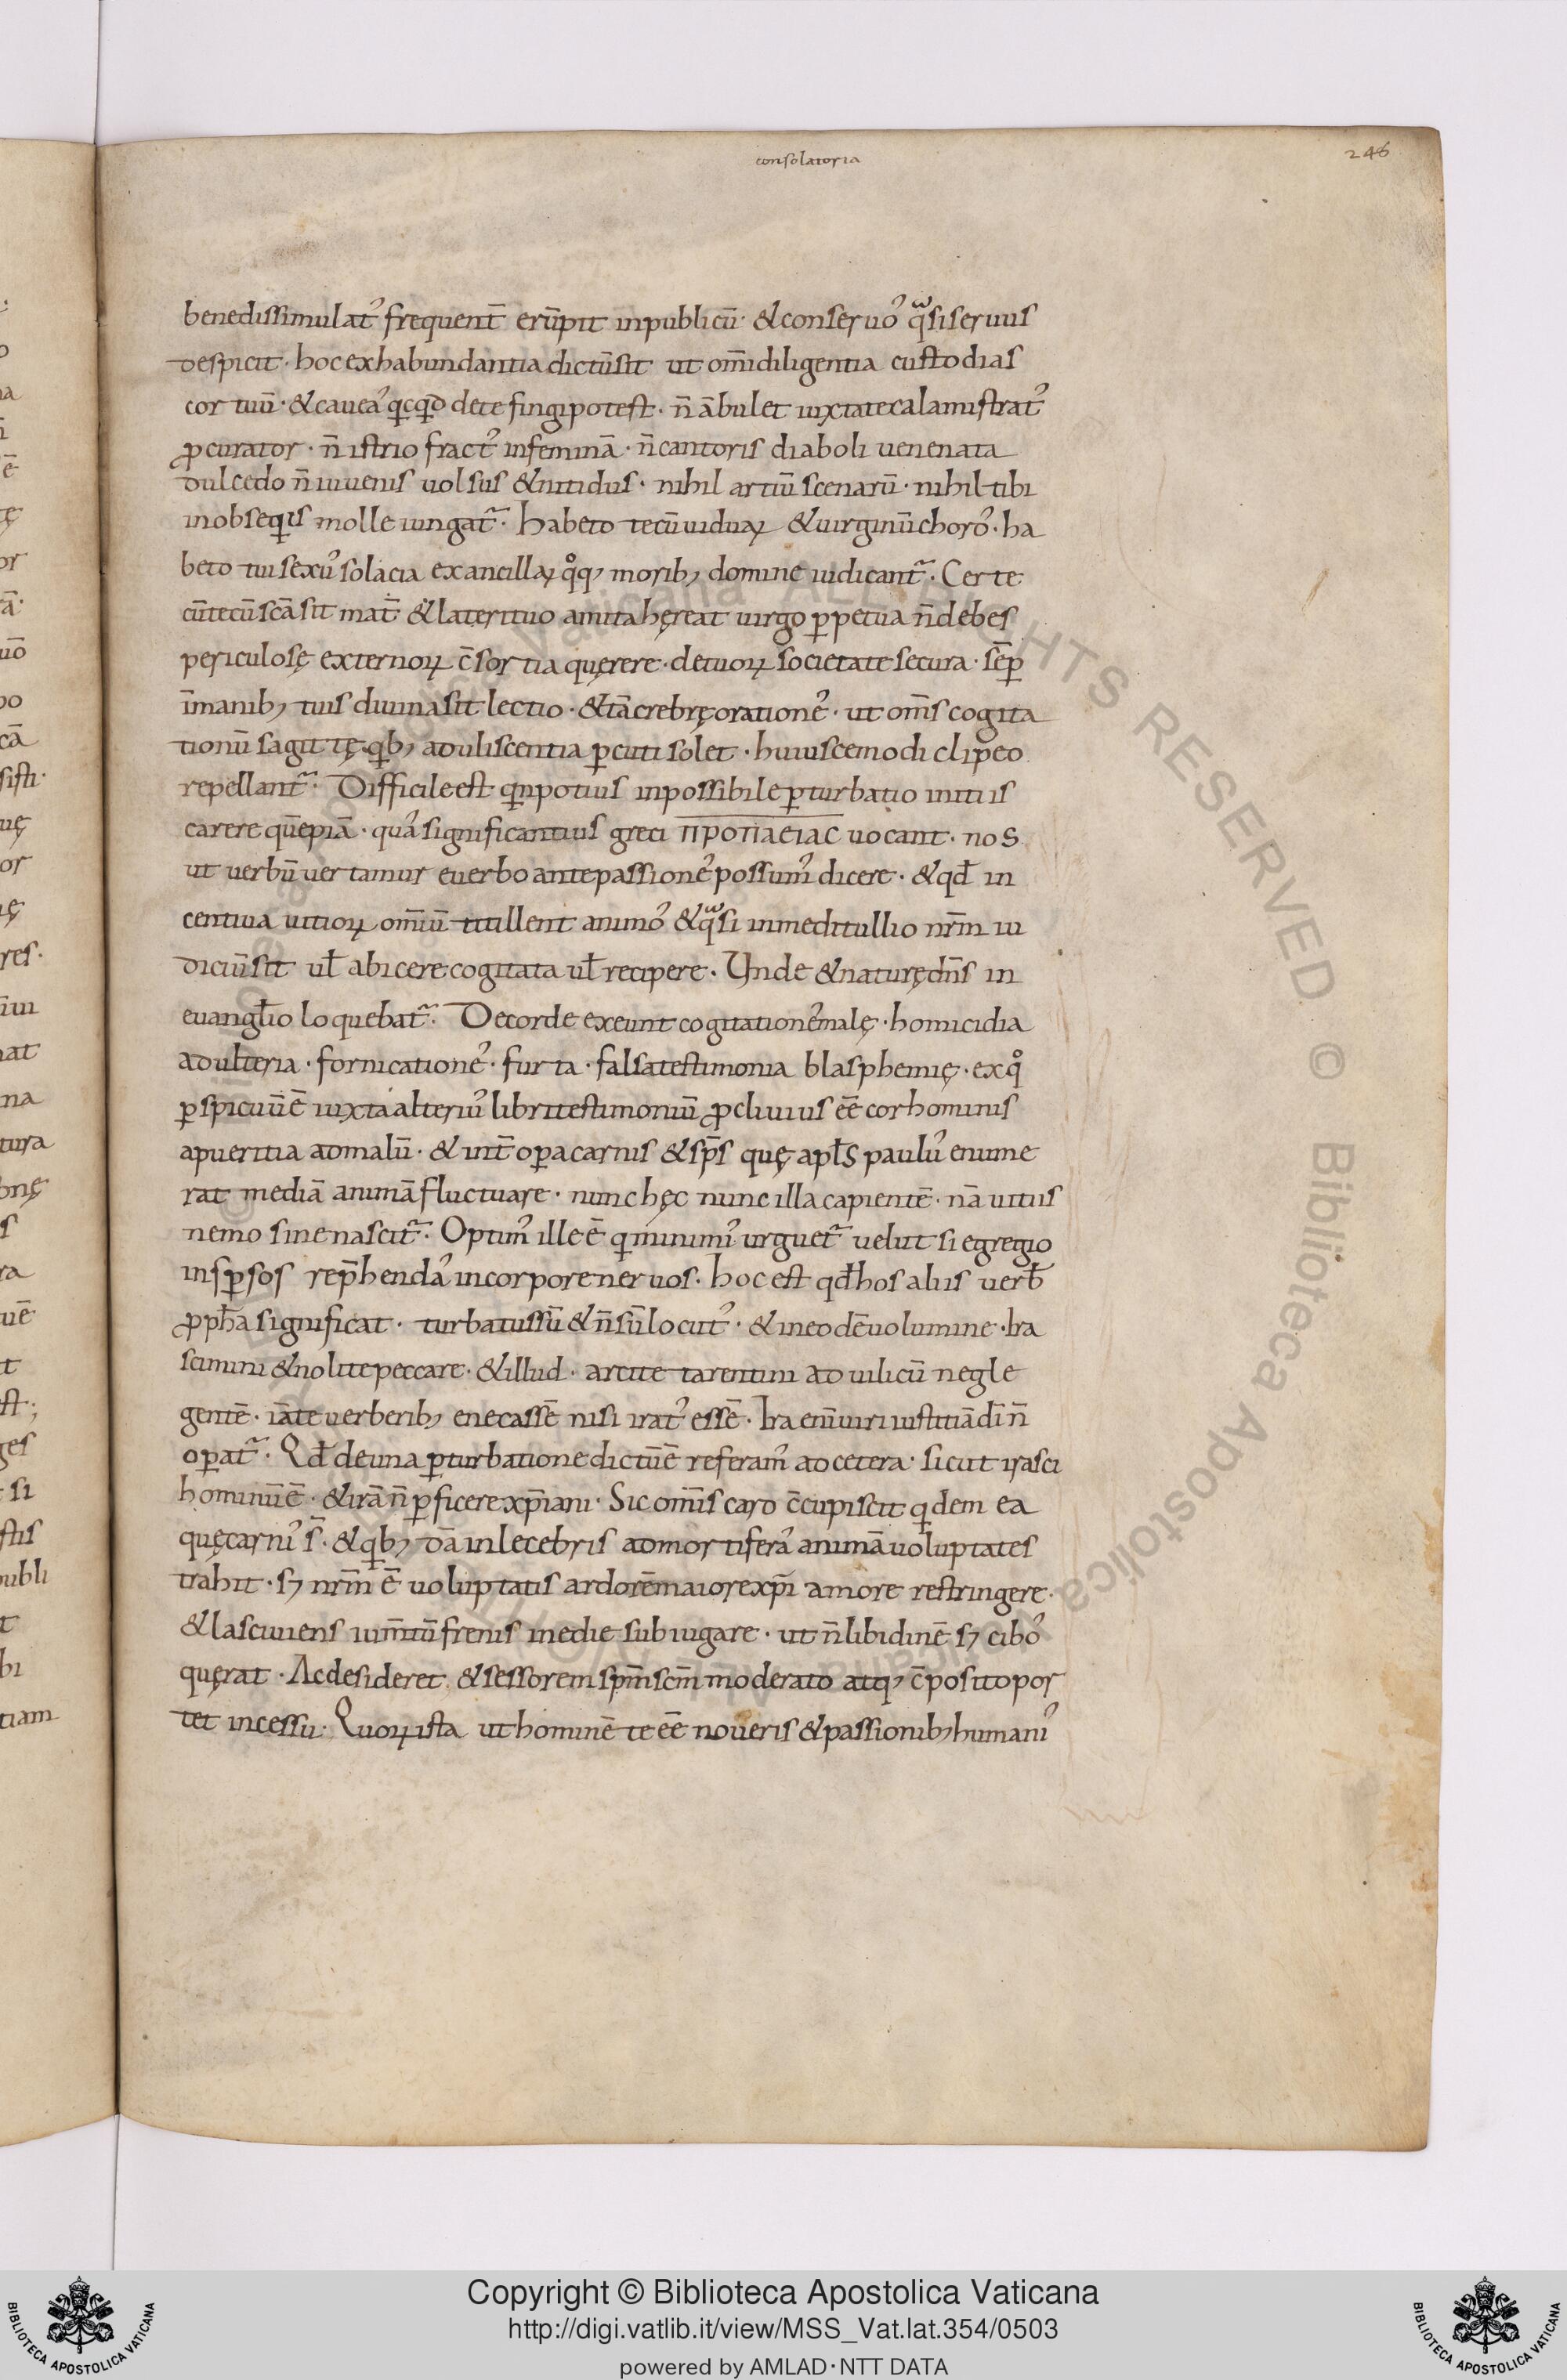 consolatoria
246
benedissimulat᾽ frequent̄ erūpit inpublicū · & conseruo᾽ qͣsiseruus
despicit · hoc exhabundantia dictūsit ut om̄idiligentia custodias
cor tuū · & cauea᾽ qͥcqͥd dete fingipotest · n̄ ābulet iuxtatecalamistrat᾽
ꝓcurator · n̄ istrio fract᾽ infeminā · n̄cantoris diaboli uenenata
dulcedo n̄ iuuenis uolsus & nitidus · nihil artiū scenarū · nihil tibi
inobseqͥis molle iungat᷒ · habeto tecū uiduaꝝ & uirginū choro᾽ · ha
beto tui sexu᾽ solacia ex ancillaꝝ qͦq; morib; domine iudicant᷒ · Certe
cūtecū scā sit mat̄ & laterituo amita hęreat uirgo ꝑpetua n̄debes
periculosę externoꝝ c̄sortia quęrere · detuoꝝ societate secura · sēꝑ
īmanib; tuis diuinasit lectio · & tā crebrę oratione᾽ · ut om̄s cogita
tionū sagittę · qͥb; aduliscentia ꝑcuti solet · huiuscemodi clipeo
repellant᷒ · Difficile est qͥnpotius inpossibile ꝑturbatio initiis
carere quēpiā · qua᾽ significantius greci προπαειας uocant · nos
ut uerbū uertamur euerbo antepassione᾽ possum᾽ dicere · & qđ in
centiua uitioꝝ om̄iū titillent animo᾽ & qͣsi inmeditullio nr̄m iu
diciūsit ul̄ abicere cogitata ul̄ recipere · Unde & naturę dn̄s in
euangl̄io loquebat᷒ · Decorde exeunt cogitatione᾽ malę · homicidia
adulteria · fornicatione᾽ · furta · falsatestimonia blasphemię · ex qͦ
ꝑspicuū ē iuxta alteriu᾽ libri testimoniū ꝓcliuius eē cor hominis
apueritia admalū · & int̄ oꝑa carnis & sp̄s quę apl̄s paulu᾽ enume
rat mediā animā fluctuare · nunc hęc nunc illa capientē · nā uitiis
nemo sine nascit᷒ · Optim᾽ ille ē qͥ minimi᾽ urguet᷒ uelut si egregio
insꝑsos rep̄henda᾽ incorpore neruos · hoc est qđ hos aliis uerb̄
ꝓph̄a significat · turbatus sū & n̄ sū locut᾽ · & ineodē uolumine · Ira
scimini & nolite peccare · & illud · arcite tarentini ad uilicū negle
gentē · iāte uerberib; enecassē nisi irat᾽ essē · Ira enī uiri iustitiā dī n̄
oꝑat᷒ · Qđ deuna ꝑturbatione dictū ē referam᾽ ad cetera · sicut irasci
hominū ē · & irā n̄ ꝑficere xp̄iani · Sic om̄is caro c̄cupiscit qͥdem ea
quę carni᾽ s̄ · & qͥb; dā inlecebris ad mortifera᾽ animā uoluptates
trahit · sꝫ nr̄m ē uoluptatis ardorē maiore xp̄i amore restringere ·
& lasciuiens ium̄tū frenis inedie subiugare · ut n̄ libidinē sꝫ cibo᾽
quęrat · Ac desideret & sessorem sp̄m scm̄ moderato atq; c̄posito por
tet incessu · Quoꝝ ista ut hominē te eē noueris & passionib; humani᾽
Copyright © Biblioteca Apostolica Vaticana
http://digi.vatlib.it/view/MSS_Vat.lat.354/0503
powered by AMLAD·NTT DATA